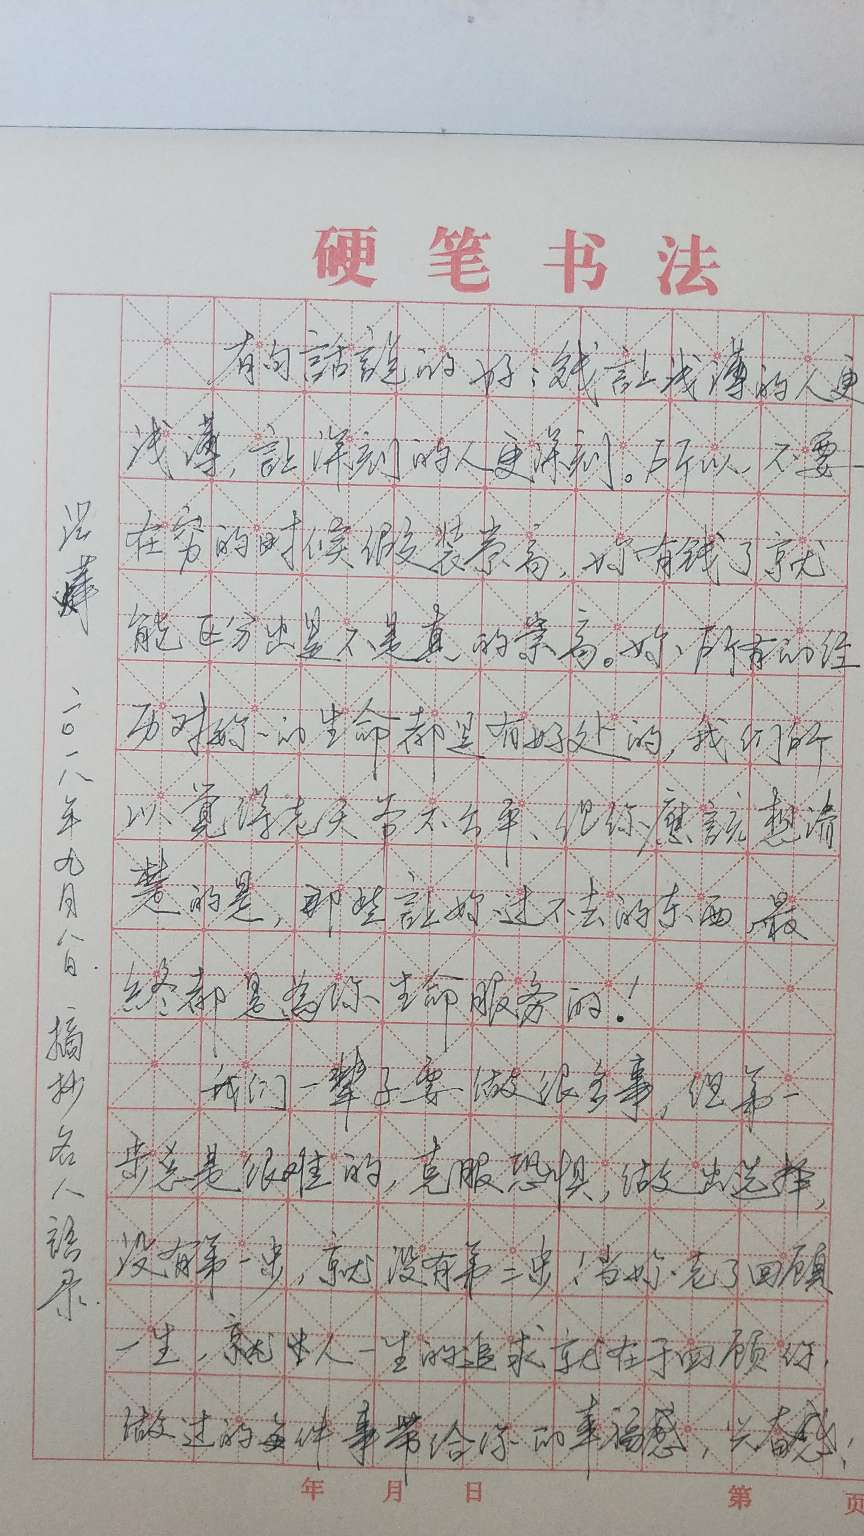 硬笔书法
有句話說的好:钱让浅薄的人更
浅薄,让深刻的人更深刻。所以,不要
在穷的时候假装崇高,妳有钱了就
能区分出是不是真的崇高。妳所有的经
历对妳的生命都是有好处的,我们所
以覚得老天常不公平、但你應該想清
楚的是,那些让妳过不去的东西,最
终都是為你生命服务的!
我们一辈子要做很多事,但第一
步总是很难的,克服恐惧,做出选择,
没有第一步,就没有第二步!当妳老了回顾
一生,就 人一生的追求就在于回顾你
做过的每件事带给你的幸福感,兴奋感!
二〇一八年九月八日.摘抄名人語录.
年 月 日 第 页